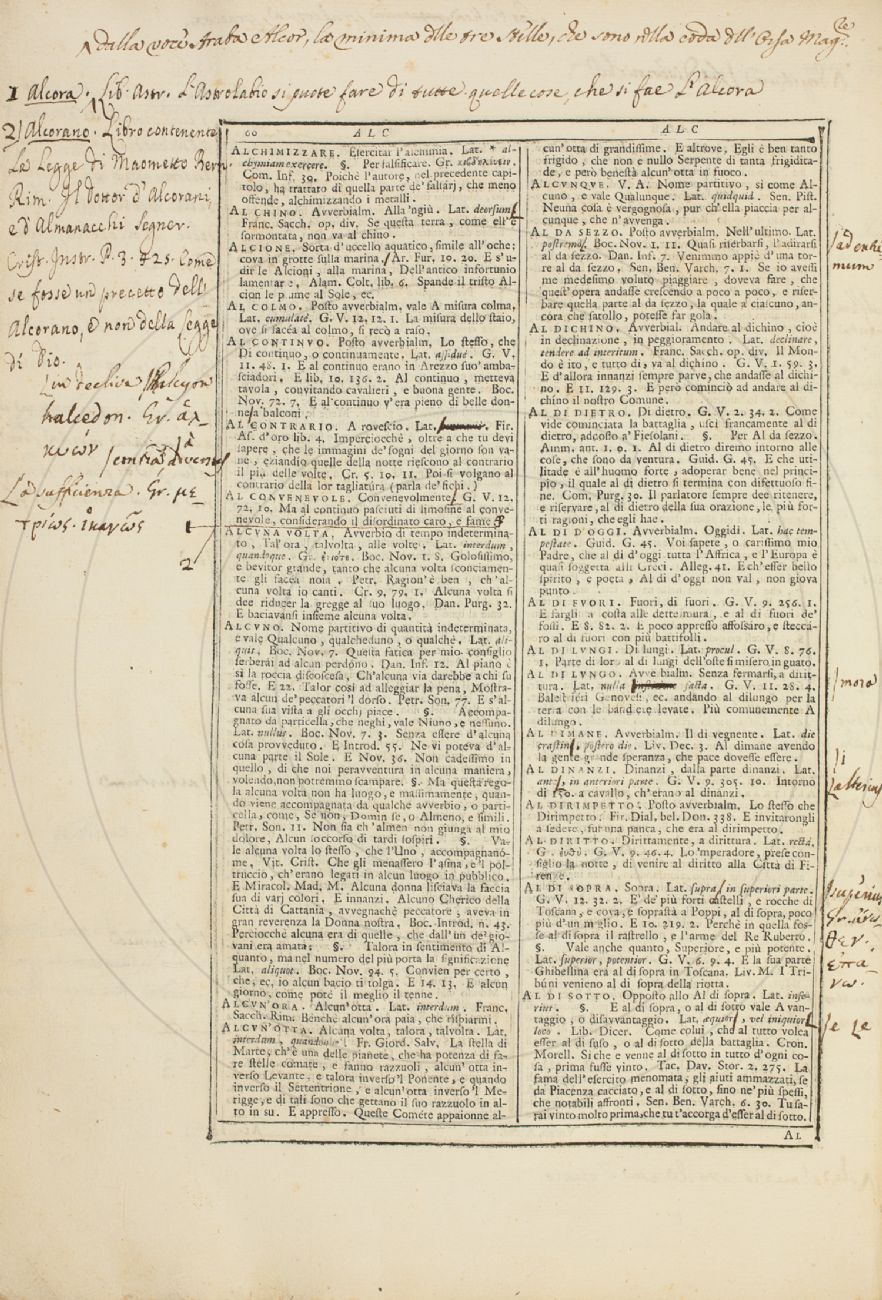 Dalla voce Araba Alcor, la minima delle tre stelle, che sono nella coda dell'Orsa Mag.re
1 Alcora. Lib. Astr. L'Astrolabio si puote fare di tutte quelle cose, che si fae l'Alcora
2) Alcorano. Libro contenente
La Legge di Maometto Bern.
Rim. Il dottor d'Alcorani,
e d'Almanacchi Segner.
Crist. Instr. P. 3. § 25. Come
se fosse un precetto dell'
Alcorano, e non della legge
di Dio.
halcedon. Gr. ἀλ-
κυών
La sufficienza. Gr. με-
τρίως. ἱκανῶς
1
2
60 ALC
ALCHIMIZZARE. Esercitar l'alchimia. Lat. * al-
chymiam exercere. §. Per falsificare. Gr.
Com. Inf. 30. Poichè l'autore, nel precedente capi-
tolo, ha trattato di quella parte de' falsarj, che meno
offende, alchimizzando i metalli.
AL CHINO. Avverbialm. Alla 'ngiù. Lat. deorsum
Franc. Sacch. op. div. Se questa terra, come ell'è
formontata, non va al chino.
ALCIONE. Sorta d'uccello aquatico, simile all'oche;
cova in grotte sulla marina. Ar. Fur. 10. 20. E s'u-
dir le Alcioni, alla marina, Dell'antico infortunio
lamentare, Alam. Colt. lib. 6. Spande il tristo Al-
cion le piume al Sole, ec.
AL COLMO. Posto avverbialm. vale A misura colma,
Lat. cumulatè. G. V. 12. 12. 1. La misura dello staio,
ove si facéa al colmo, si recò a raso.
AL CONTINVO. Posto avverbialm. Lo stesso, che
Di continuo, o continuamente. Lat. assiduè. G. V.
11. 48. 1. E al continuo erano in Arezzo suo' amba-
sciadori. E lib. 10. 136. 2. Al continuo, metteva
tavola, convitando cavalieri, e buona gente. Boc.
Nov. 72. 7. E al continuo v'era pieno di belle don-
ne 'a balconi.
AL CONTRARIO. A rovescio. Lat. Fir.
As. d'oro lib. 4. Imperciocchè, oltre a che tu devi
sapere, che le immagini de' sogni del giorno son va-
ne, eziandio quelle della notte riescono al contrario
il più delle volte. Cr. 5. 10. 11. Poi si volgano al
contrario della lor tagliatura (parla de' fichi.)
AL CONVENEVOLE. Convenevolmente. G. V. 12.
72. 10. Ma al continuo pasciuti di limosine al conve-
nevole, considerando il disordinato caro, e fame.
ALCVNA VOLTA. Avverbio di tempo indetermina-
to, Tal'ora, talvolta, alle volte. Lat. interdum,
quandoque. Gr. Boc. Nov. 1. 8. Golosissimo,
e bevitor grande, tanto che alcuna volta sconciamen-
te gli facea noia. Petr. Ragion'è ben, ch'al-
cuna volta io canti. Cr. 9. 79. 1. Alcuna volta si
dee riducer la gregge al suo luogo. Dan. Purg. 32.
E baciavansi insieme alcuna volta.
ALCVNO. Nome partitivo di quantità indeterminata,
e vale Qualcuno, qualcheduno, o qualchè. Lat. ali-
quis. Boc. Nov. 7. Questa fatica per mio consiglio
serberai ad alcun perdono. Dan. Inf. 12. Al piano è
sì la roccia discoscesa, Ch'alcuna via darebbe a chi su
fosse. E 22. Talor così ad alleggiar la pena, Mostra-
va alcun de' peccatori 'l dorso. Petr. Son. 77. E s'al-
cuna sua vista a gli occhj piace. §. Accompa-
gnato da particella, che neghi, vale Niuno, e nessuno.
Lat. nullus. Boc. Nov. 7. 3. Senza essere d'alcuna
cosa provveduto. E Introd. 55. Ne vi poteva d'al-
cuna parte il Sole. E Nov. 36. Non cadessimo in
quello, di che noi peravventura in alcuna maniera,
volendo, non potremmo scampare. §. Ma questa rego-
la alcuna volta non ha luogo, e massimamente, quan-
do viene accompagnata da qualche avverbio, o parti-
cella, come, Se non, Domin se, o Almeno, e simili.
Petr. Son. 11. Non sia ch'almen non giunga al mio
dolore, Alcun soccorso di tardi sospiri. §. Va-
le alcuna volta lo stesso, che l'Uno, accompagnano-
me, Vit. Crist. Che gli menassero l'asina, e 'l pol-
truccio, ch'erano legati in alcun luogo in pubblico.
E Miracol. Mad. M. Alcuna donna lisciava la faccia
sua di varj colori. E innanzi. Alcuno Cherico della
Città di Cattania, avvegnachè peccatore, aveva in
gran reverenza la Donna nostra. Boc. Introd. n. 43.
Perciocchè alcuna era di quelle, che dall'un de' gio-
vani era amata: §. Talora in sentimento di Al-
quanto, ma nel numero del più porta la significazione
Lat. aliquot. Boc. Nov. 94. 5. Convien per certo,
che, ec. io alcun bacio ti tolga. E 14. 13. E alcun
giorno, come potè il meglio il tenne.
ALCVN'ORA. Alcun'otta. Lat. interdum. Franc.
Sacch. Rim. Benchè alcun'ora paia, che rispiarmi.
ALCVN'OTTA. Alcuna volta, talora, talvolta. Lat.
interdum, quandoque. Fr. Giord. Salv. La stella di
Marte, ch'è una delle pianete, che ha potenza di fa-
re stelle comate, e fanno razzuoli, alcun'otta in-
verso Levante, e talora inverso 'l Ponente, e quando
inverso il Settentrione, e alcun'otta inverso 'l Me-
rigge, e di tali sono che gettano il suo razzuolo in al-
to in su. E appresso. Queste Comete appaionne al-
ALC
cun'otta di grandissime. E altrove. Egli è ben tanto
frigido, che non e nullo Serpente di tanta frigidita-
de, e però benestà alcun'otta in fuoco.
ALCVNQVE. V. A. Nome partitivo, si come Al-
cuno, e vale Qualunque. Lat. quidquid. Sen. Pist.
Neuna cosa è vergognosa, pur ch'ella piaccia per al-
cunque, che n'avvenga.
AL DA SEZZO. Posto avverbialm. Nell'ultimo. Lat.
postremò. Boc. Nov. 1. 11. Quasi riserbarsi, l'adirarsi
al da sezzo. Dan. Inf. 7. Venimmo appiè d'una tor-
re al da sezzo, Sen. Ben. Varch. 7. 1. Se io avessi
me medesimo voluto piaggiare, doveva fare, che
quest'opera andasse crescendo a poco a poco, e riser-
bare quella parte al da sezzo, la quale a ciascuno, an-
córa che satollo, potesse far gola.
AL DICHINO. Avverbial. Andare al dichino, cioè
in declinazione, in peggioramento. Lat. declinare,
tendere ad interitum. Franc. Sacch. op. div. Il Mon-
do è ito, e tutto dì, va al dichino. G. V. 1. 59. 3.
E d'allora innanzi sempre parve, che andasse al dichi-
no. E 11. 129. 3. E però cominciò ad andare al di-
chino il nostro Comune.
AL DI DIETRO. Di dietro. G. V. 2. 34. 2. Come
vide cominciata la battaglia, uscì francamente al di
dietro, addosso a' Fiesolani. §. Per Al da sezzo.
Amm. ant. 1. 0. 1. Al di dietro diremo intorno alle
cose, che sono da ventura. Guid. G. 45. E che uti-
litade è all'huomo forte, adoperar bene nel princi-
pio, il quale al di dietro si termina con difettuoso fi-
ne. Com. Purg. 30. Il parlatore sempre dee ritenere,
e riservare, al di dietro della sua orazione, le più for-
ti ragioni, che egli hae.
AL DÌ D'OGGI. Avverbialm. Oggidì. Lat. hac tem-
pestate. Guid. G. 45. Voi sapete, o carissimo mio
Padre, che al dì d'oggi tutta l'Affrica, e l'Europa è
quasi soggetta alli Greci. Alleg. 41. Ech'esser bello
spirito, e poeta, Al dì d'oggi non val, non giova
punto.
AL DI FVORI. Fuori, di fuori. G. V. 9. 256. 1.
E fargli a costa alle dette mura, e al di fuori de'
fossi. E 8. 82. 2. E poco appresso affossaro, e stecca-
ro al di fuori con più battifolli.
AL DI LVNGI. Di lungi. Lat. procul. G. V. 8. 76.
1. Parte di loro al di lungi dell'oste si misero in guato.
AL DI LVNGO. Avverbialm. Senza fermarsi, a dirit-
tura. Lat. nulla facta. G. V. 11. 28. 4.
Balestrieri Genovesi, ec. andando al dilungo per la
terra con le bandiere levate. Più comunemente A
dilungo.
AL DIMANE. Avverbialm. Il dì vegnente. Lat. die
crastin, postero die. Liv. Dec. 3. Al dimane avendo
la gente grande speranza, che pace dovesse essere.
AL DINANZI. Dinanzi, dalla parte dinanzi. Lat.
ante, in anteriori parte. G. V. 9. 305. 10. Intorno
di 150. a cavallo, ch'erano al dinanzi.
AL DIRIMPETTO. Posto avverbialm. Lo stesso che
Dirimpetto. Fir. Dial. bel. Don. 338. E invitarongli
a sedere, sur una panca, che era al dirimpetto.
AL DIRITTO. Dirittamente, a dirittura. Lat. rectà,
G. V. 9. 46. 4. Lo 'mperadore, prese con-
siglio la notte, di venire al diritto alla Città di Fi-
renze.
AL DI SOPRA. Sopra. Lat. supra, in superiori parte.
G. V. 12. 32. 2. E' de' più forti castelli, e rocche di
Toscana, e cova, e soprastà a Poppi, al di sopra, poco
più d'un miglio. E 10. 219. 2. Perchè in quella fos-
se al di sopra il rastrello, e l'arme del Re Ruberto.
§. Vale anche quanto, Superiore, e più potente.
Lat. superior, potentior. G. V. 6. 9. 4. E la sua parte
Ghibellina era al di sopra in Toscana. Liv. M. I Tri-
búni venieno al di sopra della riotta.
AL DI SOTTO. Opposto allo Al di sopra. Lat. infe-
rius. §. E al di sopra, o al di sotto vale A van-
taggio, o disavvantaggio. Lat. æquiori, vel iniquiori
loco. Lib. Dicer. Come colui, che al tutto volea
esser al di suso, o al di sotto della battaglia. Cron.
Morell. Sì che e venne al di sotto in tutto d'ogni co-
sa, prima fusse vinto. Tac. Dav. Stor. 2. 275. La
fama dell'esercito menomata, gli aiuti ammazzati, se
da Piacenza cacciato, e al di sotto, sino ne' più spessi,
che notabili affronti. Sen. Ben. Varch. 6. 30. Tu sa-
rai vinto molto prima, che tu t'accorga d'esser al di sotto.
AL
mora